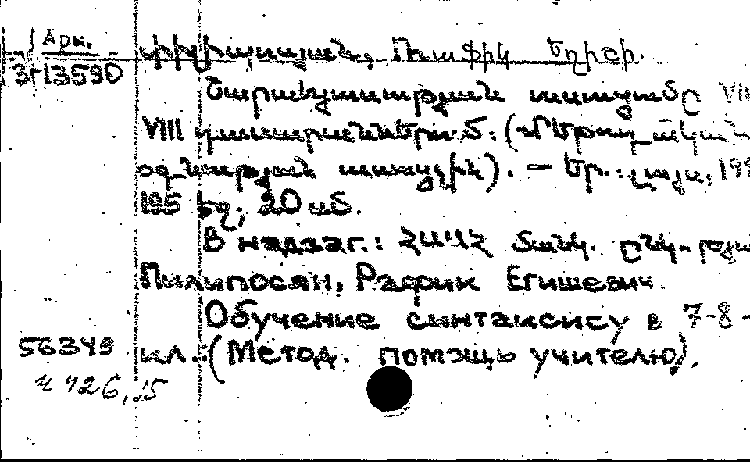 Арк.
3г13590
Փիլիպոսյան, Ռաֆիկ Եղիշի.
Շարահյուսության ուսուցումը VII
VIII դասարաններում: (Մեթոդ. ական
օգնություն ուսուցչին). — Եր.: Լույս, 199
195 էջ; 20 սմ.
В надзаг.: ՀՍՍՀ Ժանկ. ընկ-րյա
Пилипосян, Рафик Егишевич.
Обучение синтаксису в 7-8-
56349 кл.: (Метод. помощь учителю).
426,15